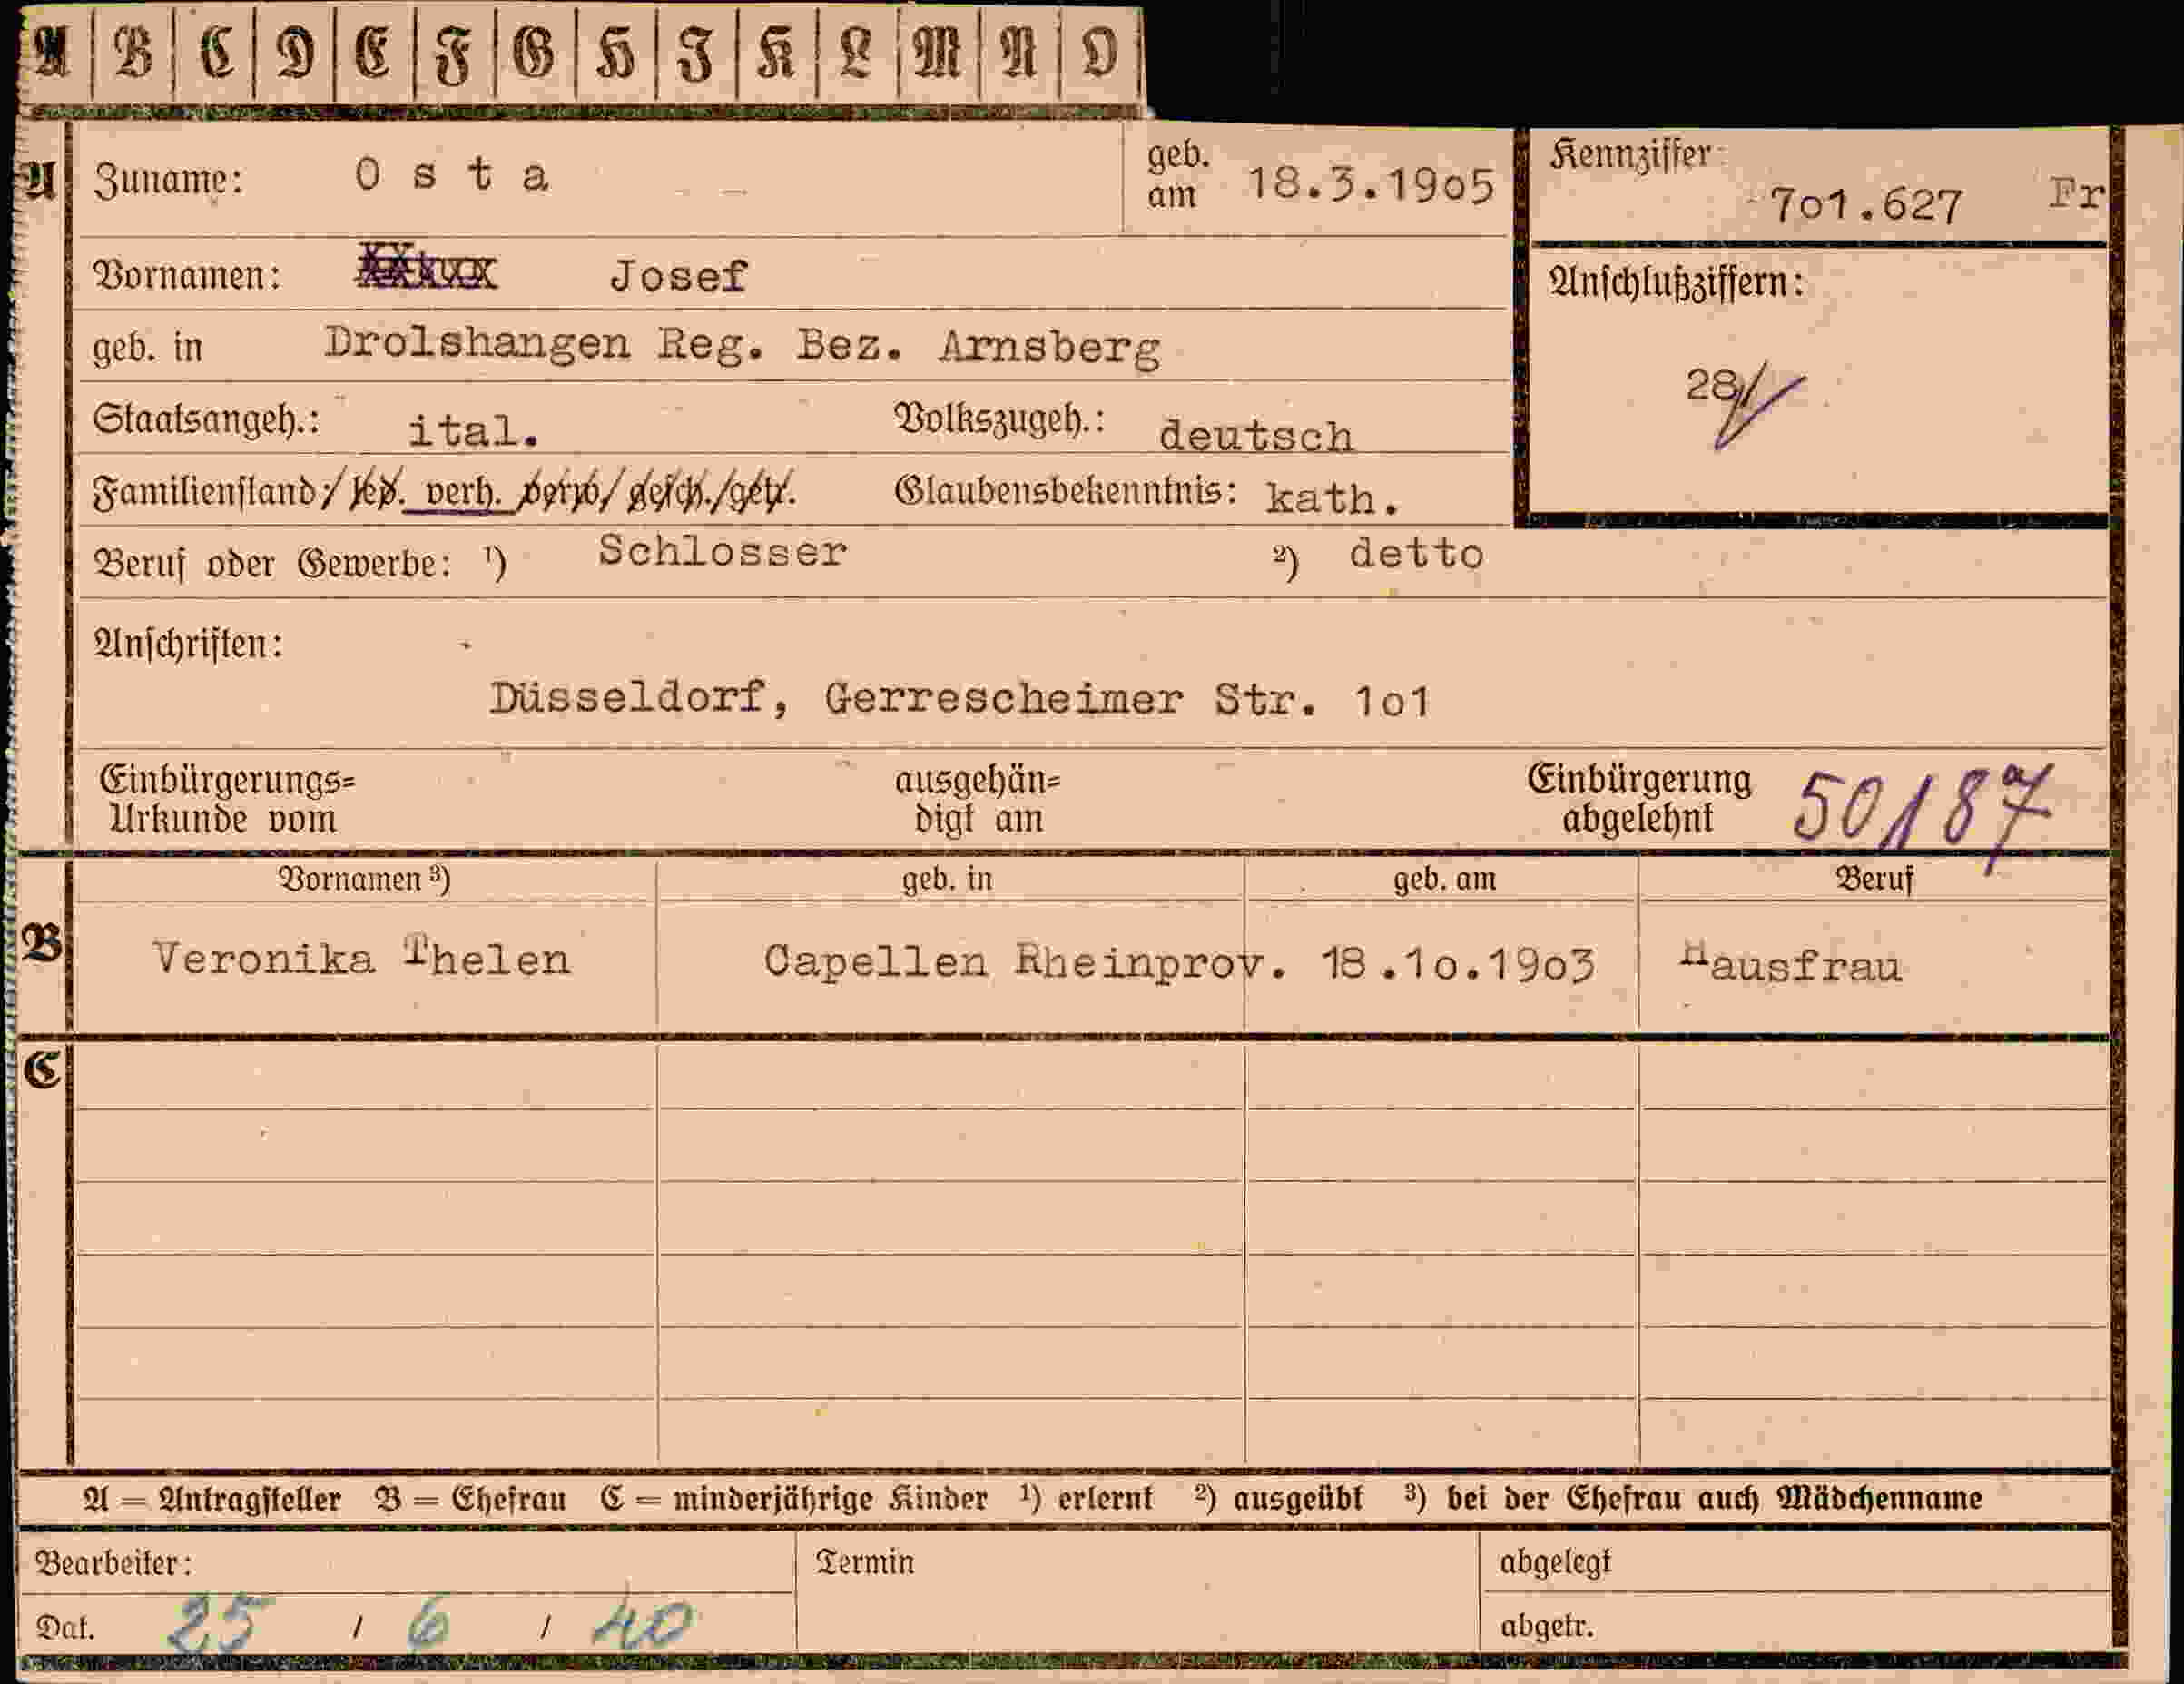 A B C D E F G H I K L M N O
A Zuname: O s t a geb. am 18.3.19o5
Kennziffer 7o1.627 Fr
Vornamen: Josef
Anschlußziffern:
28/
geb. in Drolshangen Reg. Bez. Arnsberg
Staatsangeh.: ital. Volkszugeh.: deutsch
Familienstand: led. verh. verw. gesch./getr. Glaubensbekenntnis: kath.
Beruf oder Gewerbe: ¹) Schlosser ²) detto
Anschriften:
Düsseldorf, Gerrescheimer Str. 1o1
Einbürgerungs= ausgehän= Einbürgerung
Urkunde vom digt am abgelehnt 50187
Vornamen ³) geb. in geb. am Beruf
B Veronika Thelen Capellen Rheinprov. 18.1o.19o3 Hausfrau
C
A = Antragsteller B = Ehefrau C = minderjährige Kinder ¹) erlernt ²) ausgeübt ³) bei der Ehefrau auch Mädchenname
Bearbeiter: Termin abgelegt
Dat. 25 / 6 / 40 abgetr.